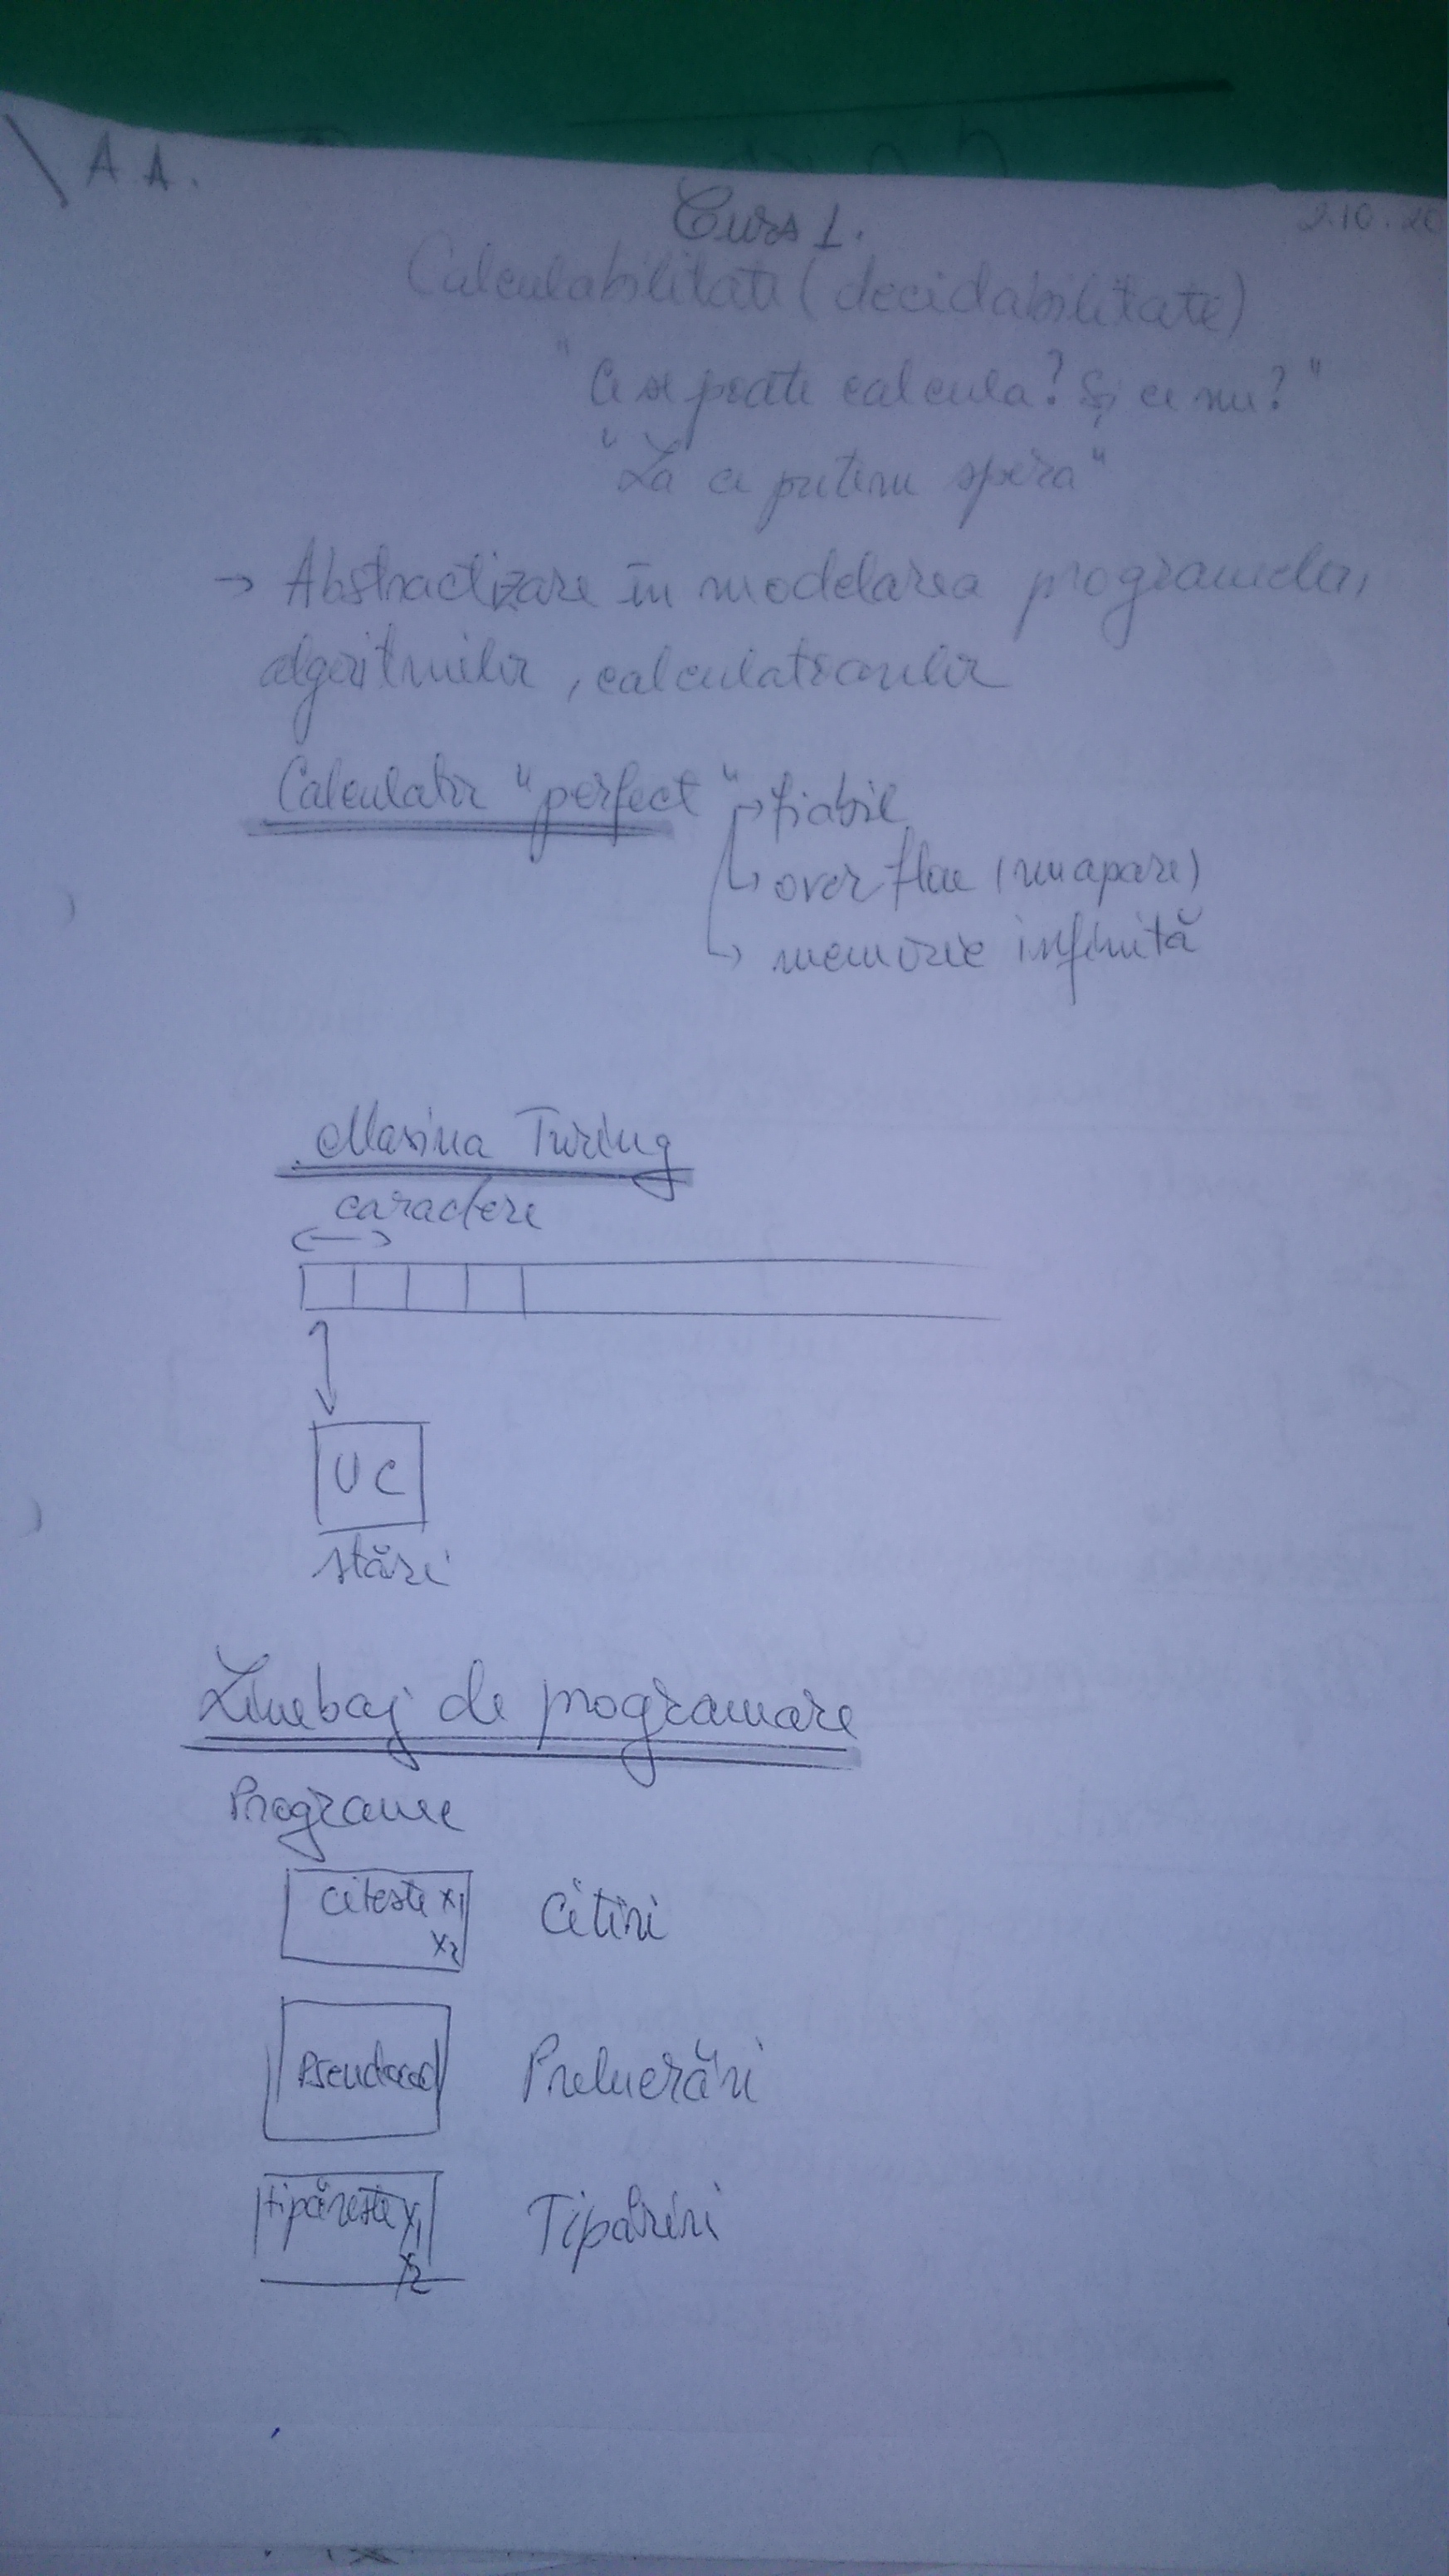 A A.
Curs 1.
Calculabilitate (decidabilitate)
"Ce se poate calcula? Și ce nu?"
"La ce putem spera"
→ Abstractizare în modelarea programelor,
algoritmilor, calculatoarelor
Calculator "perfect" → fiabil
↳ over flow (nu apare)
↳ memorie infinită
Mașina Turing
caractere
UC
stări
Limbaj de programare
Programe
citește x1 Citiri
x2
Pseudocod Prelucrări
tipărește x1 Tipăriri
x2